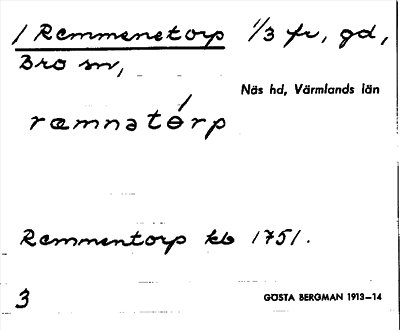 / Remmenetorp 1/3 fr, gd,
Bro sn,
Näs hd, Värmlands län
ræmnatór̀p
Remmentorp kb 1751.
3
GÖSTA BERGMAN 1913–14